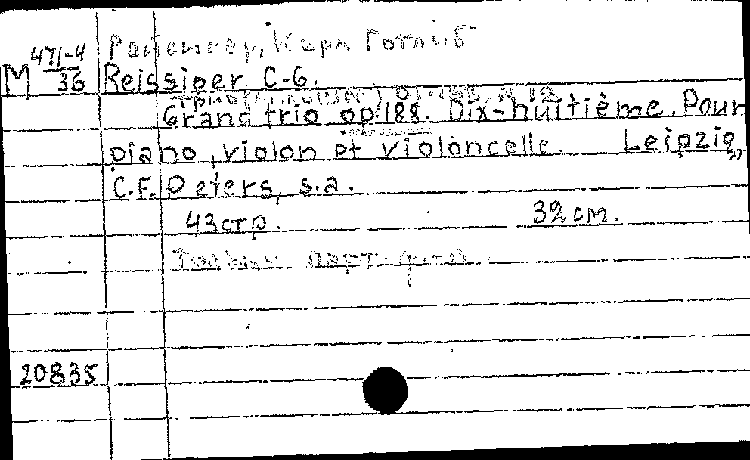 М 471-4/36
Рейссигер, Карл Готлиб
Reissiger C-G.
Grand trio op.188. Dix-huitième. Pour
piano, violon et violoncelle. Leipzig,
C.F. Peters, s.a.
43 стр. 32 см.
парт.
20835